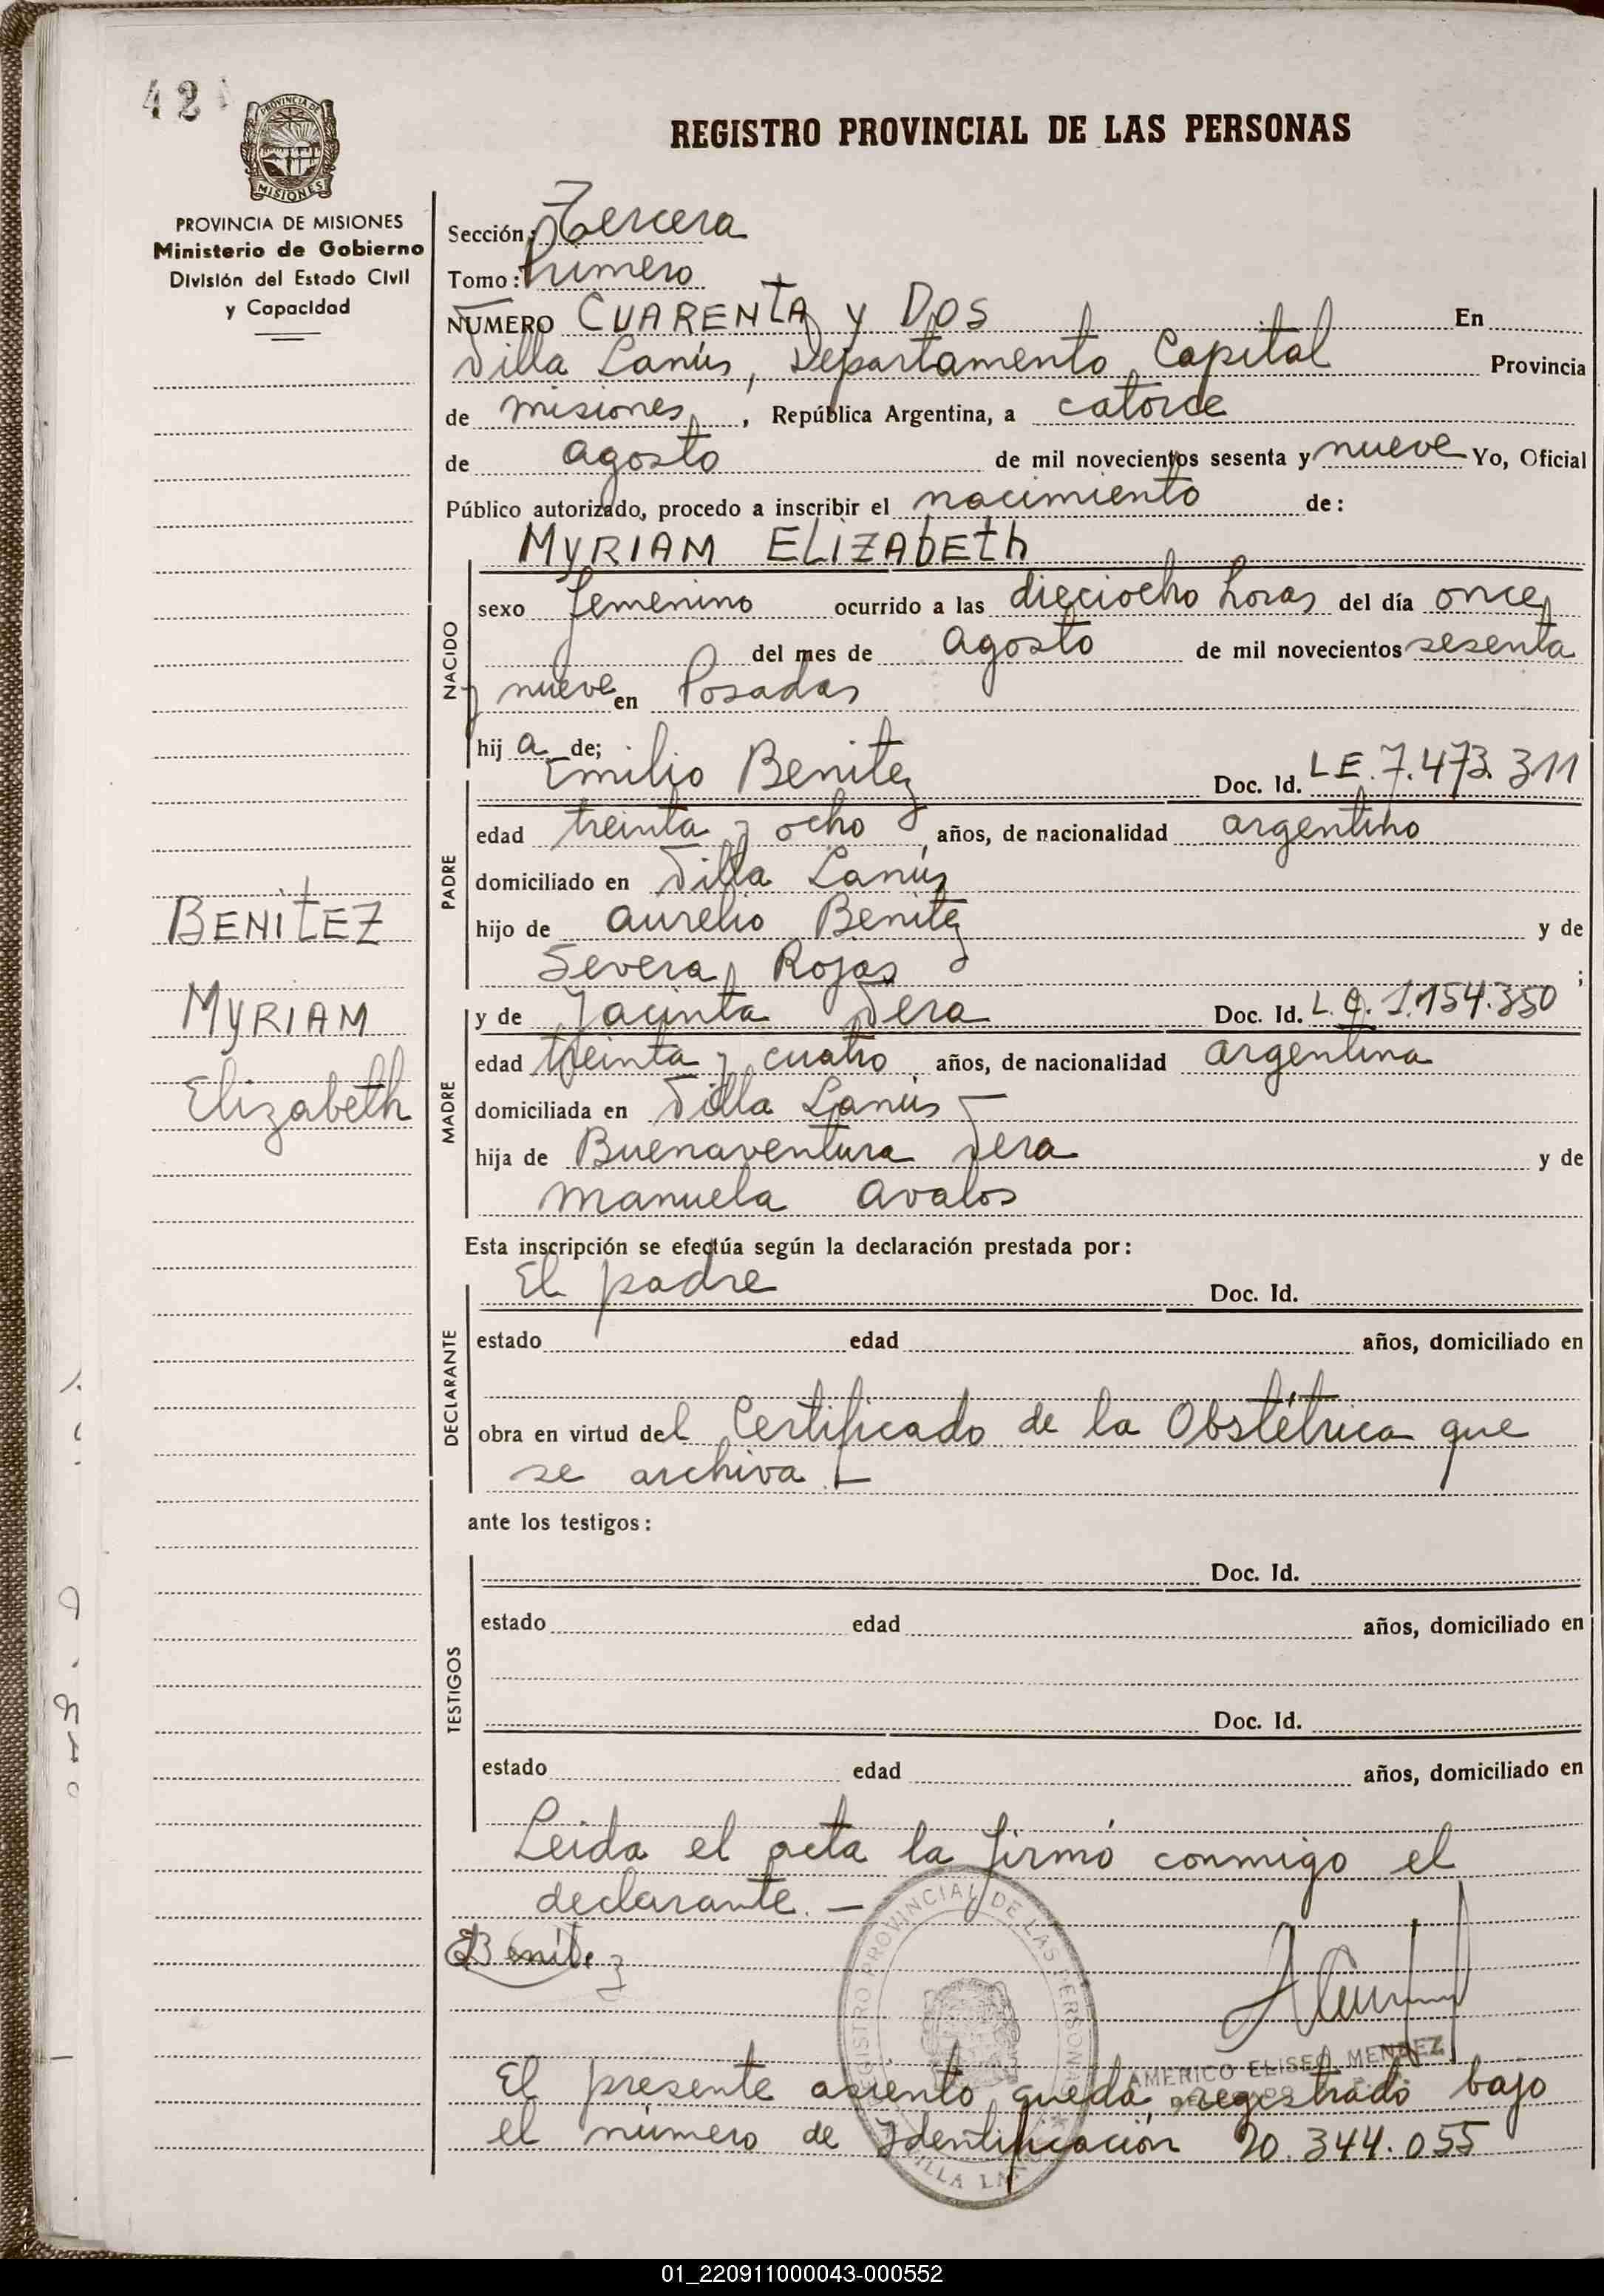 42
PROVINCIA DE
MISIONES
PROVINCIA DE MISIONES
Ministerio de Gobierno
División del Estado Civil
y Capacidad
REGISTRO PROVINCIAL DE LAS PERSONAS
Sección: Tercera
Tomo: Primero
NUMERO CUARENTA y DOS En
Villa Lanús, Departamento Capital Provincia
de misiones, República Argentina, a catorce
de agosto de mil novecientos sesenta y nueve Yo, Oficial
Público autorizado, procedo a inscribir el nacimiento de:
MYRIAM ELIZAbETh
NACIDO
sexo femenino ocurrido a las dieciocho horas del día once
del mes de agosto de mil novecientos sesenta
y nueve en Posadas
hij a de;
PADRE
Emilio Benitez Doc. Id. LE. 7.473.311
edad treinta y ocho años, de nacionalidad argentino
domiciliado en Villa Lanús
hijo de aurelio Benitez y de
Severa Rojas ;
MADRE
y de Jacinta Vera Doc. Id. L.C. 1.154.350
edad treinta y cuatro años, de nacionalidad argentina
domiciliada en Villa Lanús —
hija de Buenaventura Vera y de
manuela avalos
BENITEZ
MYRIAM
Elizabeth
Esta inscripción se efectúa según la declaración prestada por:
DECLARANTE
El padre Doc. Id.
estado edad años, domiciliado en
obra en virtud del Certificado de la Obstétrica que
se archiva. —
ante los testigos:
TESTIGOS
Doc. Id.
estado edad años, domiciliado en
Doc. Id.
estado edad años, domiciliado en
Leida el acta la firmó conmigo el
declarante. —
EBenitez
REGISTRO PROVINCIAL DE LAS PERSONAS
VILLA LANUS
AMERICO ELISEO MENDEZ
El presente asiento queda registrado bajo
el número de Identificación 20.344.055
01_220911000043-000552